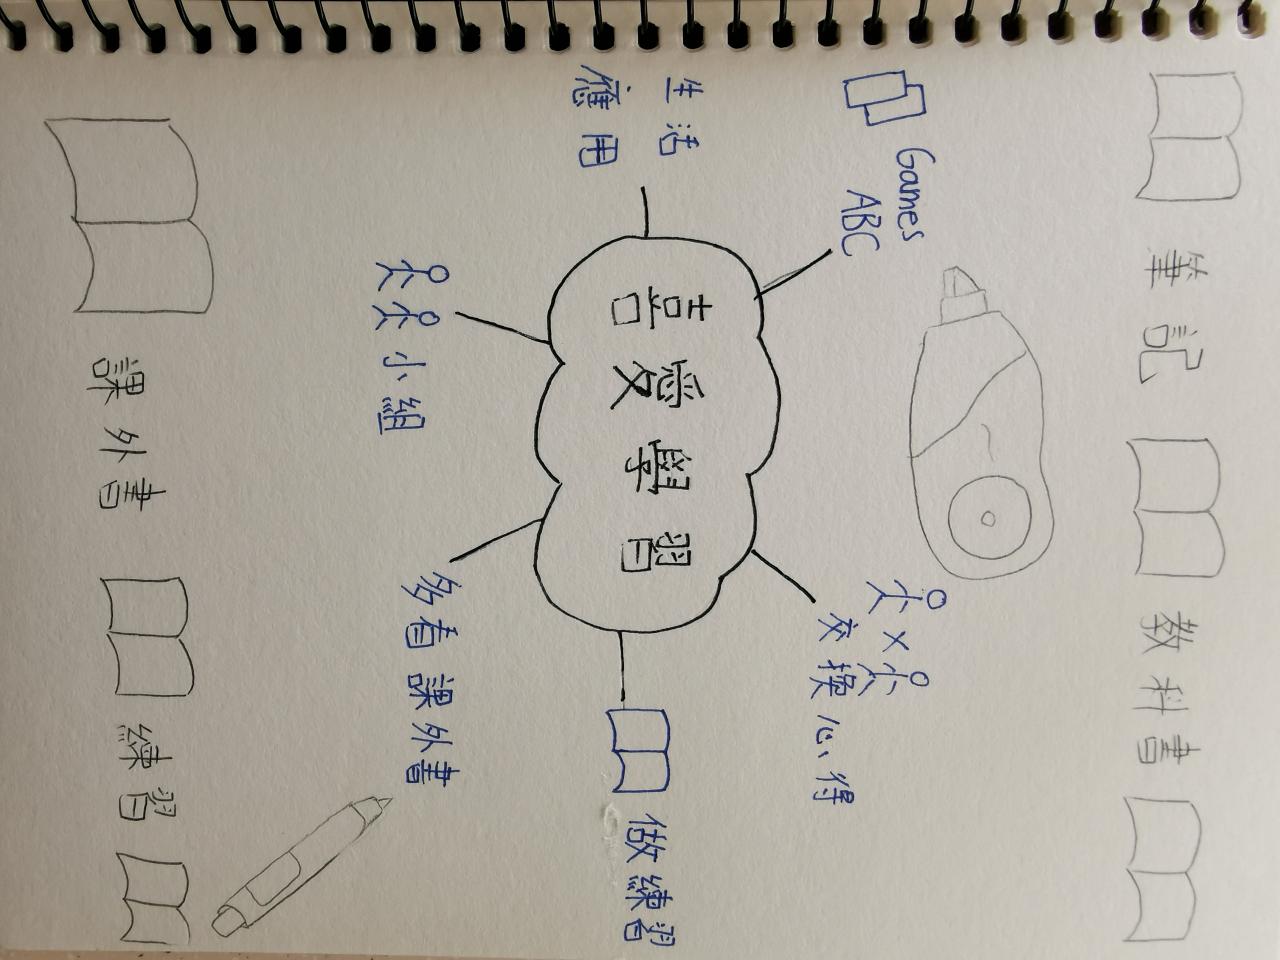 筆記
教科書
Games
ABC
交換心得
生活
應用
喜愛學習
做練習
小組
多看課外書
課外書
練習